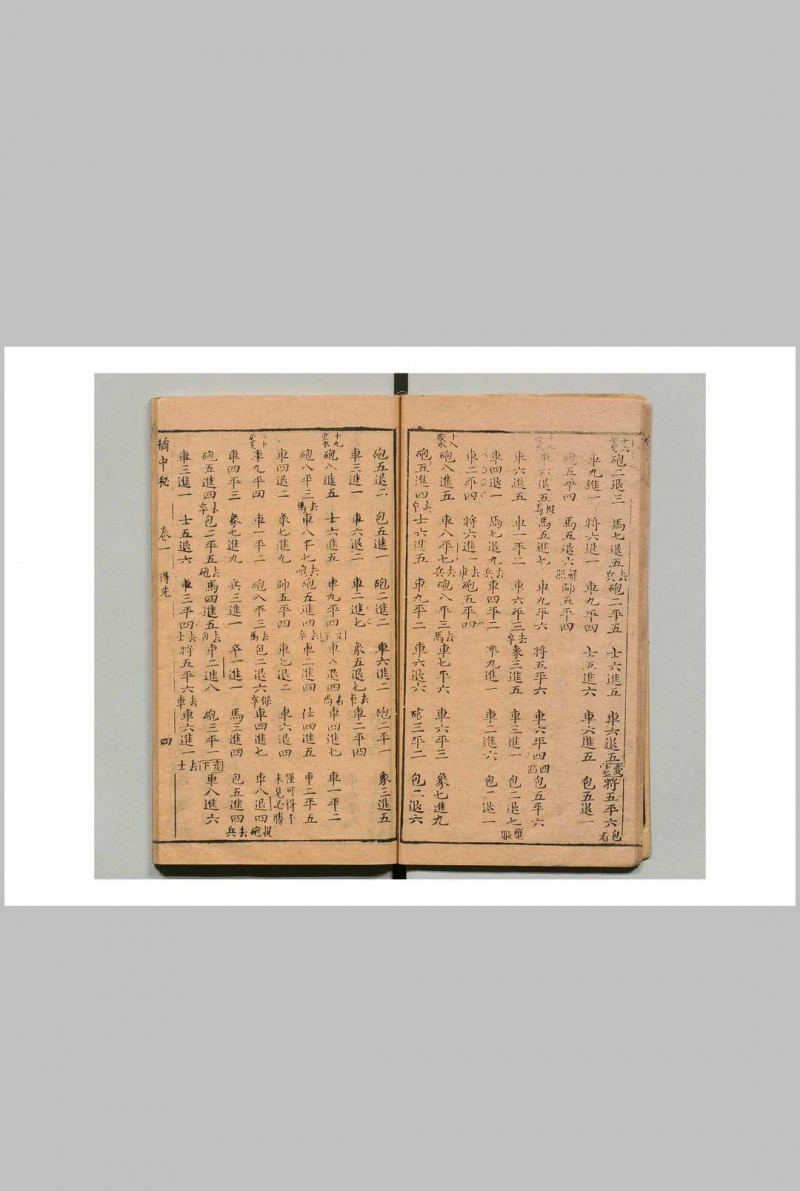 砲二退三 馬七退五 去兵 砲二平五 士六進五 車六退五 將五平六 包看
車九進一 將六退一 車九平四 士五進六 車六進五 包五退一
砲五平四 馬五退六 帥五平四
車六退五 馬五進七 車九平六 將五平六 車六平四 包五平六
車六進五 車一平二 車六平三 去卒 象三進五 車三進一 包二退七
車四退一 馬七退九 去兵 車四平二 卒九進一 車二進六 包二退一
車二平四 將六進一 去車 砲五平四
砲八進五 車八平七 去兵 砲八平三 去馬 車七平六 車六平三 象七進九
砲五進四 去卒 士六進五 車九平二 車六退六 砲三平二 包二退六
砲五退二 包五進一 砲二進二 車六進二 砲二平一 象三進五
車三進一 車六退二 車二進七 象五退七 去車 車二平四
十九變 砲八進五 士六進五 車九平四 車八退四 車四進七 車一平二
砲八平三 去馬 車八平七 去砲 砲五進四 去卒 車二進四 仕四進五 車二平五
車四退二 象七進九 帥五平四 車七退二 車六退四 僅可得子未見必勝
二十變 車九平四 車一平二 砲八平三 去馬 包二退六 車四進七 車八退四 捉砲
車四平三 象七進九 兵三進一 卒一進一 馬三進四 包五進四 去兵
砲五進四 去卒 包二平五 去砲 馬四進五 車二進八 砲三平一 車八進六
車三進一 士五退六 車三平四 去士 將五平六 去車 車六進一 去士
橘中秘 卷一 得先 四